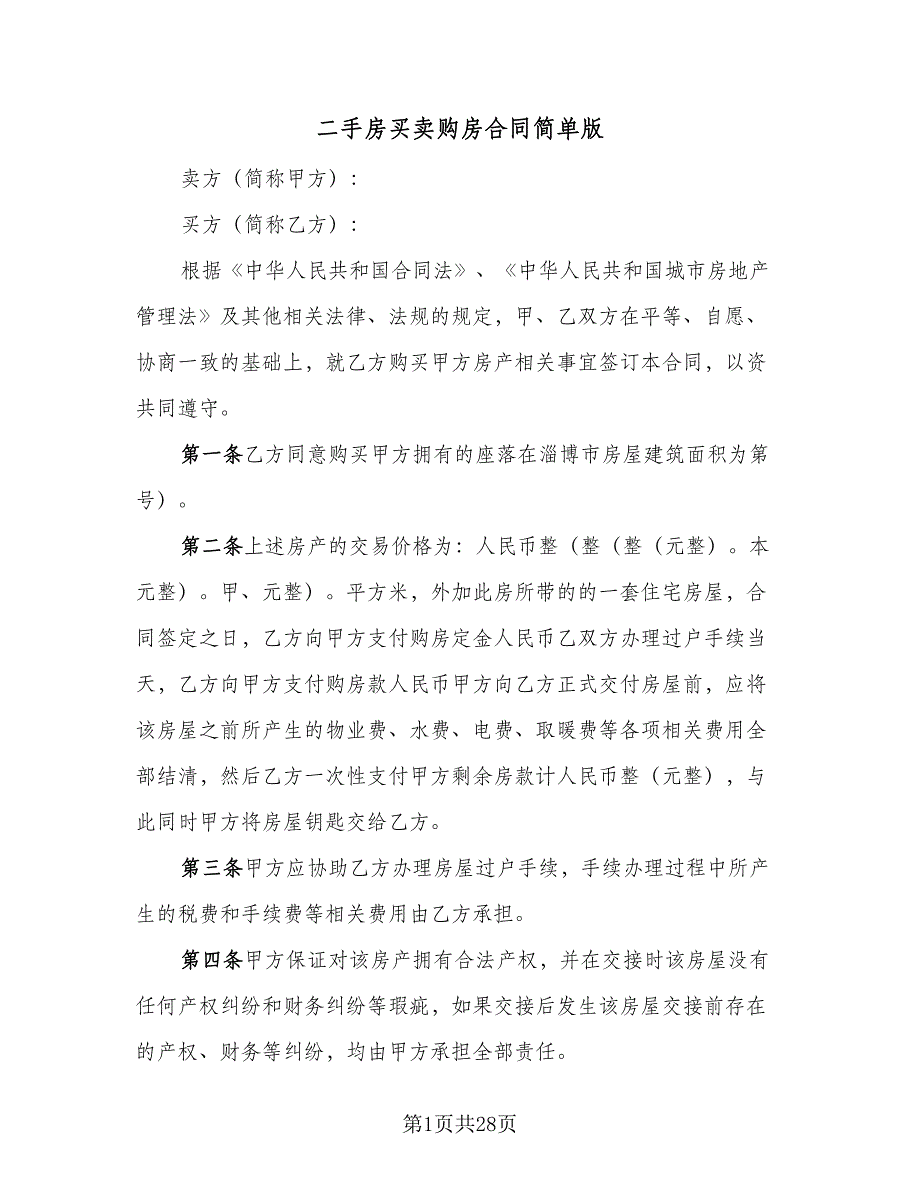 二手房买卖购房合同简单版
卖方（简称甲方）：
买方（简称乙方）：
根据《中华人民共和国合同法》、《中华人民共和国城市房地产
管理法》及其他相关法律、法规的规定，甲、乙双方在平等、自愿、
协商一致的基础上，就乙方购买甲方房产相关事宜签订本合同，以资
共同遵守。
第一条乙方同意购买甲方拥有的座落在淄博市房屋建筑面积为第
号）。
第二条上述房产的交易价格为：人民币整（整（整（元整）。本
元整）。甲、元整）。平方米，外加此房所带的的一套住宅房屋，合
同签定之日，乙方向甲方支付购房定金人民币乙双方办理过户手续当
天，乙方向甲方支付购房款人民币甲方向乙方正式交付房屋前，应将
该房屋之前所产生的物业费、水费、电费、取暖费等各项相关费用全
部结清，然后乙方一次性支付甲方剩余房款计人民币整（元整），与
此同时甲方将房屋钥匙交给乙方。
第三条甲方应协助乙方办理房屋过户手续，手续办理过程中所产
生的税费和手续费等相关费用由乙方承担。
第四条甲方保证对该房产拥有合法产权，并在交接时该房屋没有
任何产权纠纷和财务纠纷等瑕疵，如果交接后发生该房屋交接前存在
的产权、财务等纠纷，均由甲方承担全部责任。
第1页共28页